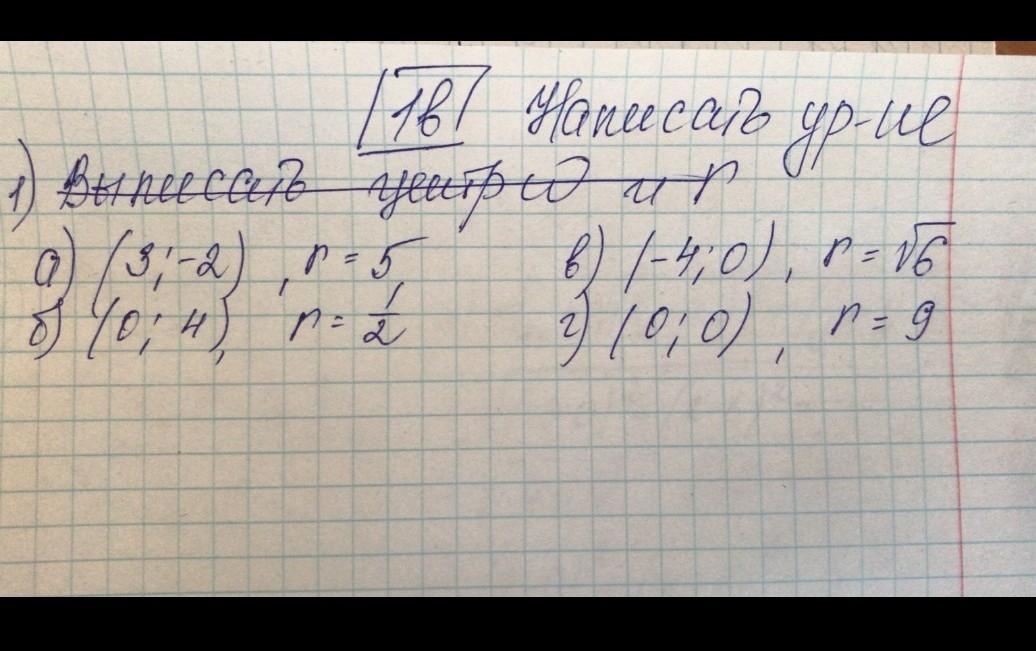 1в Написать ур-ие
1) Выписать центр ω и r
а) (3; -2), r = 5, в) (-4; 0), r = √6
б) (0; 4), r = 1/2 г) (0; 0), r = 9